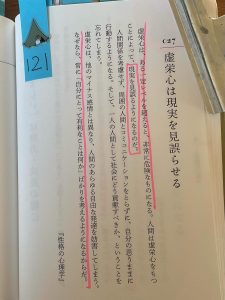 121
027
虚栄心は現実を見誤らせる
虚栄心は、ある一定レベルを超えると、非常に危険なものになる。人間は虚栄心をもつ
ことによって、現実を見誤るようになるのだ。
人間関係を考慮せず、周囲の人間とコミュニケーションをとらずに、自分の思うままに
行動するようになる。そして、一人の人間として社会にどう貢献すべきか、ということを
忘れてしまう。
虚栄心は、他のマイナス感情とは異なり、人間のあらゆる自由な発達を妨害してしまう。
なぜなら、常に「自分にとって有利なことは何か」ばかりを考えるようになるからだ。
『性格の心理学』